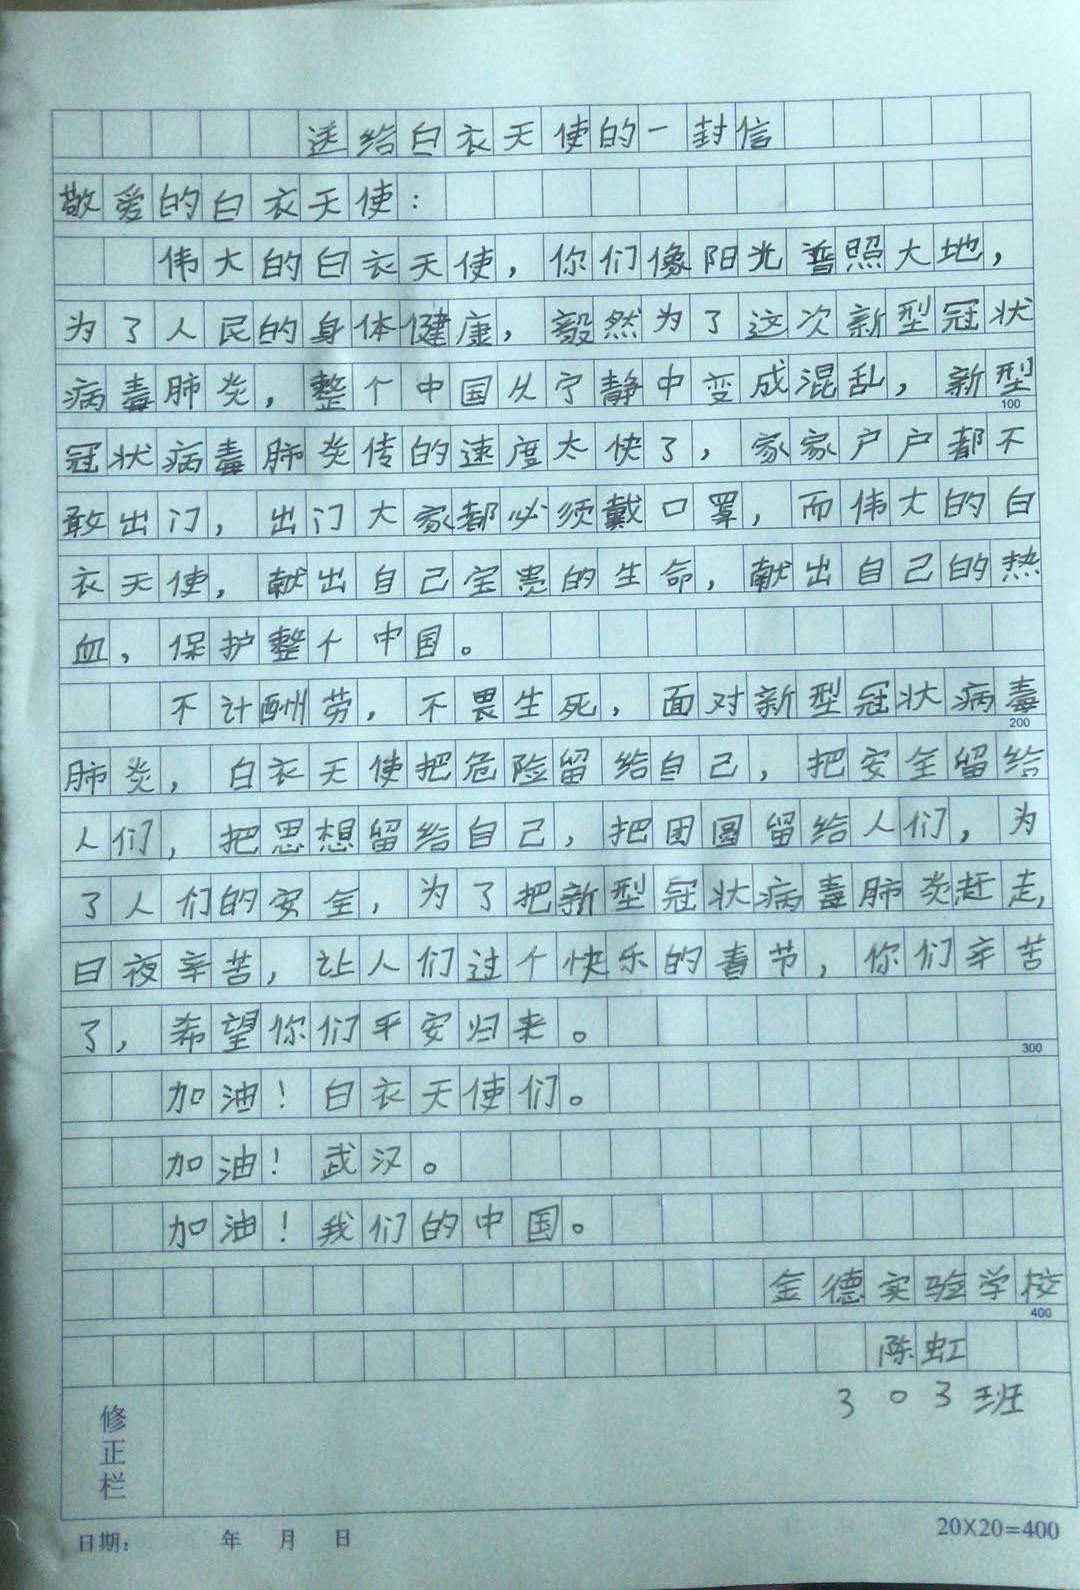 送给白衣天使的一封信
敬爱的白衣天使：
伟大的白衣天使，你们像阳光普照大地，
为了人民的身体健康，毅然为了这次新型冠状
病毒肺炎，整个中国从宁静中变成混乱，新型
100
冠状病毒肺炎传的速度太快了，家家户户都不
敢出门，出门大家都必须戴口罩，而伟大的白
衣天使，献出自己宝贵的生命，献出自己的热
血，保护整个中国。
不计酬劳，不畏生死，面对新型冠状病毒
200
肺炎，白衣天使把危险留给自己，把安全留给
人们，把思想留给自己，把团圆留给人们，为
了人们的安全，为了把新型冠状病毒肺炎赶走，
日夜辛苦，让人们过个快乐的春节，你们辛苦
了，希望你们平安归来。
300
加油！白衣天使们。
加油！武汉。
加油！我们的中国。
金德实验学校
400
陈虹
303班
修正栏
日期： 年 月 日
20X20=400